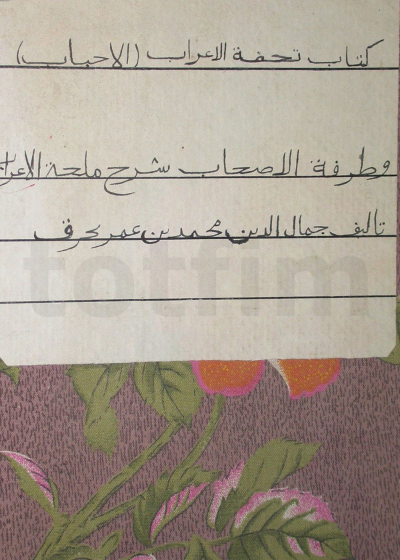 كتاب تحفة الاعراب (الاحباب)
وطرفة الاصحاب شرح ملحة الاعراب
تاليف جمال الدين محمد بن عمر بحرق
totfim